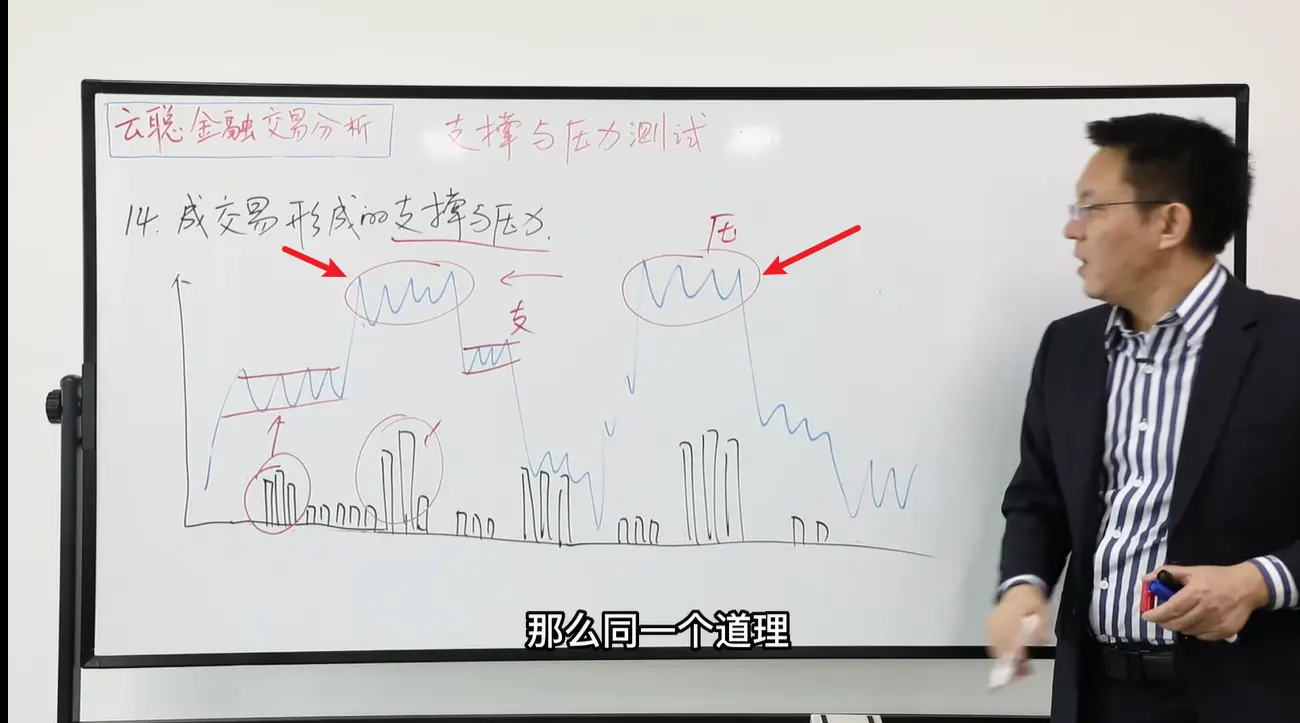 云聪金融交易分析
支撑与压力测试
14. 成交易形成的支撑与压力.
压
支
那么同一个道理